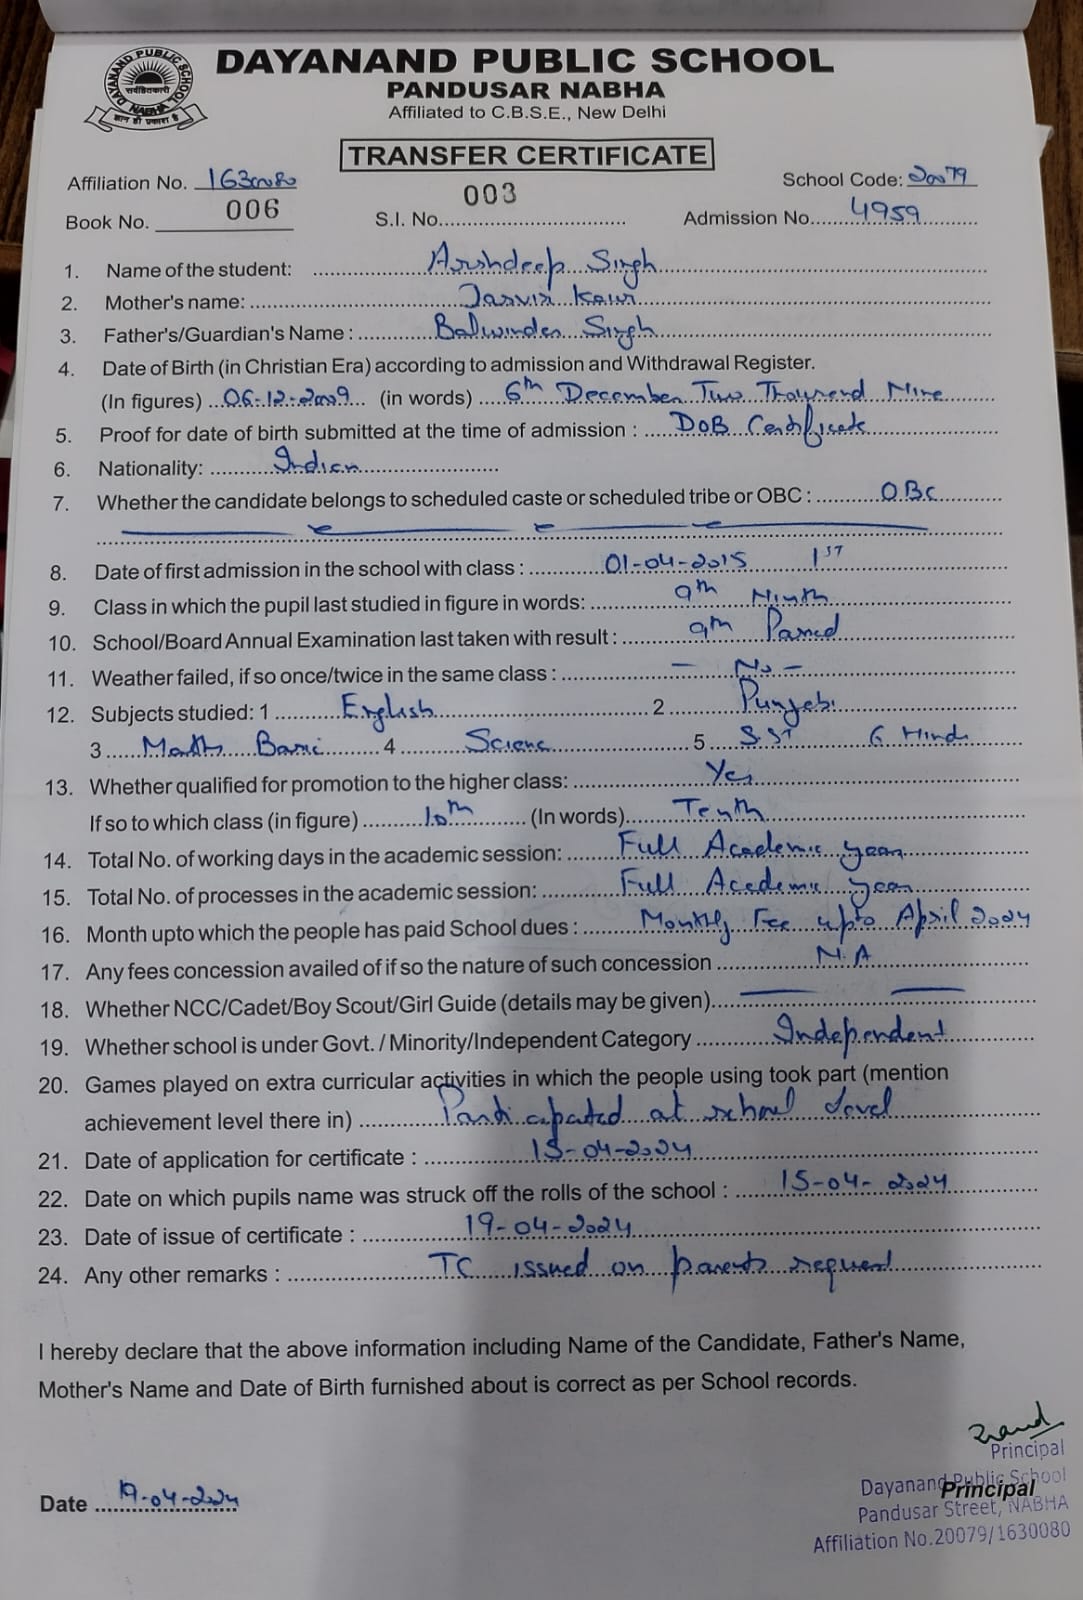 DAYANAND PUBLIC SCHOOL
PANDUSAR NABHA
Affiliated to C.B.S.E., New Delhi
DAYANAND PUBLIC SCHOOL
सर्वहितकारी
NABHA
ज्ञान ही प्रकाश है
TRANSFER CERTIFICATE
Affiliation No. 1630080 School Code: 20079
Book No. 006 S.I. No. 003 Admission No. 4959
1. Name of the student: Arshdeep Singh
2. Mother's name: Jasvir Kaur
3. Father's/Guardian's Name : Balwinder Singh
4. Date of Birth (in Christian Era) according to admission and Withdrawal Register.
(In figures) 06-12-2009 (in words) 6th December Two Thousend Nine
5. Proof for date of birth submitted at the time of admission : DOB Certificate
6. Nationality: Indian
7. Whether the candidate belongs to scheduled caste or scheduled tribe or OBC : OBC
8. Date of first admission in the school with class : 01-04-2015 1ST
9. Class in which the pupil last studied in figure in words: 9th Ninth
10. School/Board Annual Examination last taken with result : 9th Passed
11. Weather failed, if so once/twice in the same class : - No -
12. Subjects studied: 1 English 2 Punjabi
3 Math Basic 4 Scienc 5 S.ST 6 Hindi
13. Whether qualified for promotion to the higher class: Yes
If so to which class (in figure) 10th (In words) Tenth
14. Total No. of working days in the academic session: Full Academic year
15. Total No. of processes in the academic session: Full Academic year
16. Month upto which the people has paid School dues : Monthly Fee upto April 2024
17. Any fees concession availed of if so the nature of such concession N.A
18. Whether NCC/Cadet/Boy Scout/Girl Guide (details may be given)
19. Whether school is under Govt. / Minority/Independent Category Independent
20. Games played on extra curricular activities in which the people using took part (mention
achievement level there in) Participated at school level
21. Date of application for certificate : 15-04-2024
22. Date on which pupils name was struck off the rolls of the school : 15-04-2024
23. Date of issue of certificate : 19-04-2024
24. Any other remarks : TC issued on parents request
I hereby declare that the above information including Name of the Candidate, Father's Name,
Mother's Name and Date of Birth furnished about is correct as per School records.
Principal
Dayanand Public School
Principal
Pandusar Street, NABHA
Affiliation No.20079/1630080
Date 19-04-2024